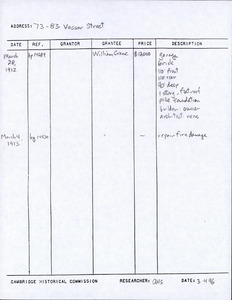 ADDRESS: 73-83 Vassar Street
DATE REF. GRANTOR GRANTEE PRICE DESCRIPTION
March William Crane $12000 garage
28, brick
1912 110 front
110 rear
90 deep
1 story, flat roof
pile foundation
builder: owner
architect: none
March 4 repair fire damage
1913
CAMBRIDGE HISTORICAL COMMISSION RESEARCHER: DATE: 3-4-96